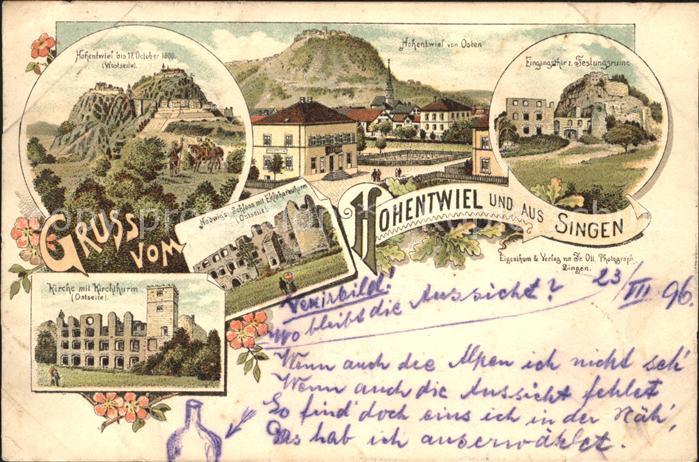 Hohentwiel bis 17. October 1800.
(Westseite).
Hohentwiel von Osten
Eingangsthür z. Festungsruine
GRUSS VOM
HOHENTWIEL UND AUS SINGEN
Hadwigs Schloss mit Ekkehardsturm
(Ostseite).
Kirche mit Kirchthurm
(Ostseite).
Eigenthum & Verlag von Fr. Ott, Photograph,
Singen.
23/VII 96
Vexirbild!
Wo bleibt die Aussicht?
Wenn auch die Alpen ich nicht seh'
Wenn auch die Aussicht fehlet
So find' doch eins ich in der Näh',
Das hab ich auserwählet.